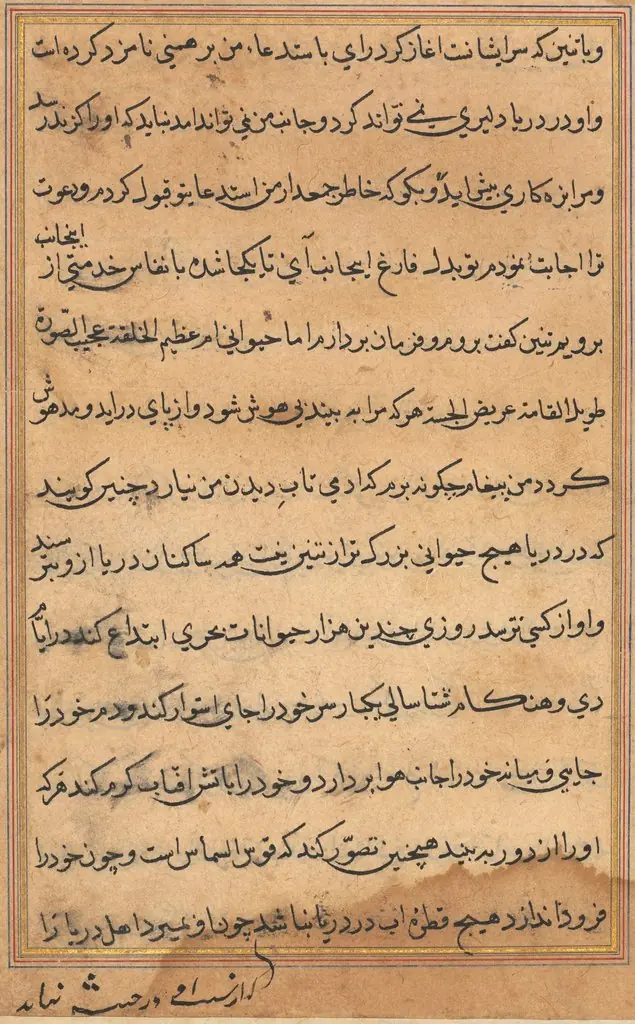 و با تنین که سر ایشانت اغاز کرد رای باستدعاء من بر همینی نامزد کرده است
و او در دریا دلیری نمی تواند کرد و جانب من نمی تواند امد نباید که او را کزند رسد
و مرا بزه کاری پیش اید و بکو که خاطر جمعدار من استدعا یتو قبول کردم و دعوت
ترا اجابت نمودم تو بدل فارغ اینجانب آی تا یکجا شده بانفاس خدمتی از اینجانب
برویم تنین کفت بروم و فرمان بردارم اما حیوانی ام عظیم الخلقة عجیب الصّورة
طویل القامة عریض الجسة هر که مرا به بیند بی هوش شود و از پای دراید و مدهوش
کردد من پیغام چکونه برم که ادمی تابِ دیدن من نیارد چنین کویند
که در دریا هیچ حیوانی بزرک تر از تنین نیست همه ساکنان دریا ازو بترسند
و او از کسی نترسد روزی چندین هزار حیوانات بحری ابتداع کند در ایّام
دی و هنکام شتا سالی یکبار سر خود را جای استوار کند و دم خود را
جایی و میانه خود را جانب هوا بر دارد و خود را باتش افتاب کرم کند هر که
او را از دور به بیند همچنین تصوّر کند که قوس السماس است و چون خود را
فرود اندازد هیچ قطرهٔ اب در دریا نباشد چون او بمیرد اهل دریا را